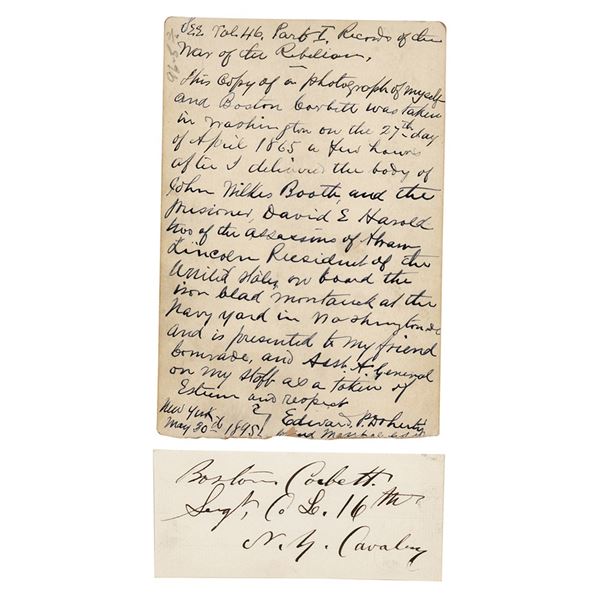 See Vol. 46, Part I. Records of the
War of the Rebelion,
This Copy of a photograph of myself
and Boston Corbett was taken
in Washington on the 27th day
of April 1865 a few hours
after I delivered the body of
John Wilkes Booth, and the
prisioner, David E Harold
two of the assassins of Abram
Lincoln President of the
United States, on board the
iron clad montauk at the
Navy yard in Washington DC
and is presented to my friend
Comrade, and Asst. A. General
on my staff as a token of
Esteem and respect
New York Edward P. Doherty
May 30th 1895
Grand Marshal
Boston Corbett.
Sergt, Co L. 16th
N. Y. Cavalry